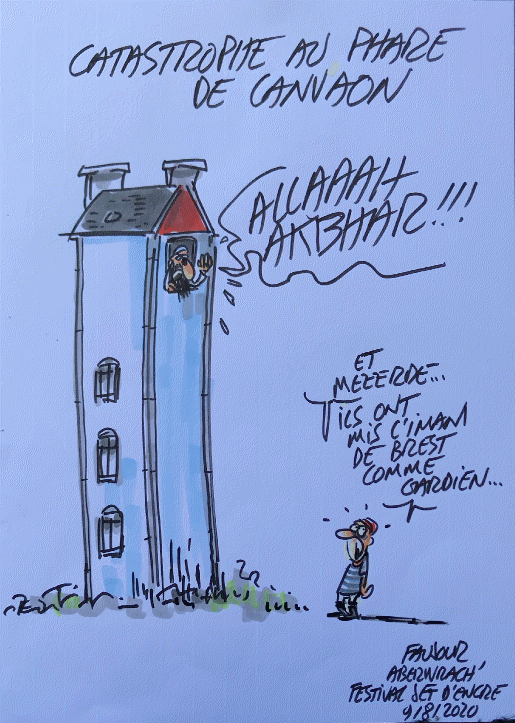 CATASTROPHE AU PHARE
DE CANVAON
ALLAAAH
AKBHAR!!!
ET
MEZERDE...
ILS ONT
MIS L'IMAM
DE BREST
COMME
GARDIEN...
FAUJOUR
ABERWRACH'
FESTIVAL JET D'ENCRE
9/8/2020